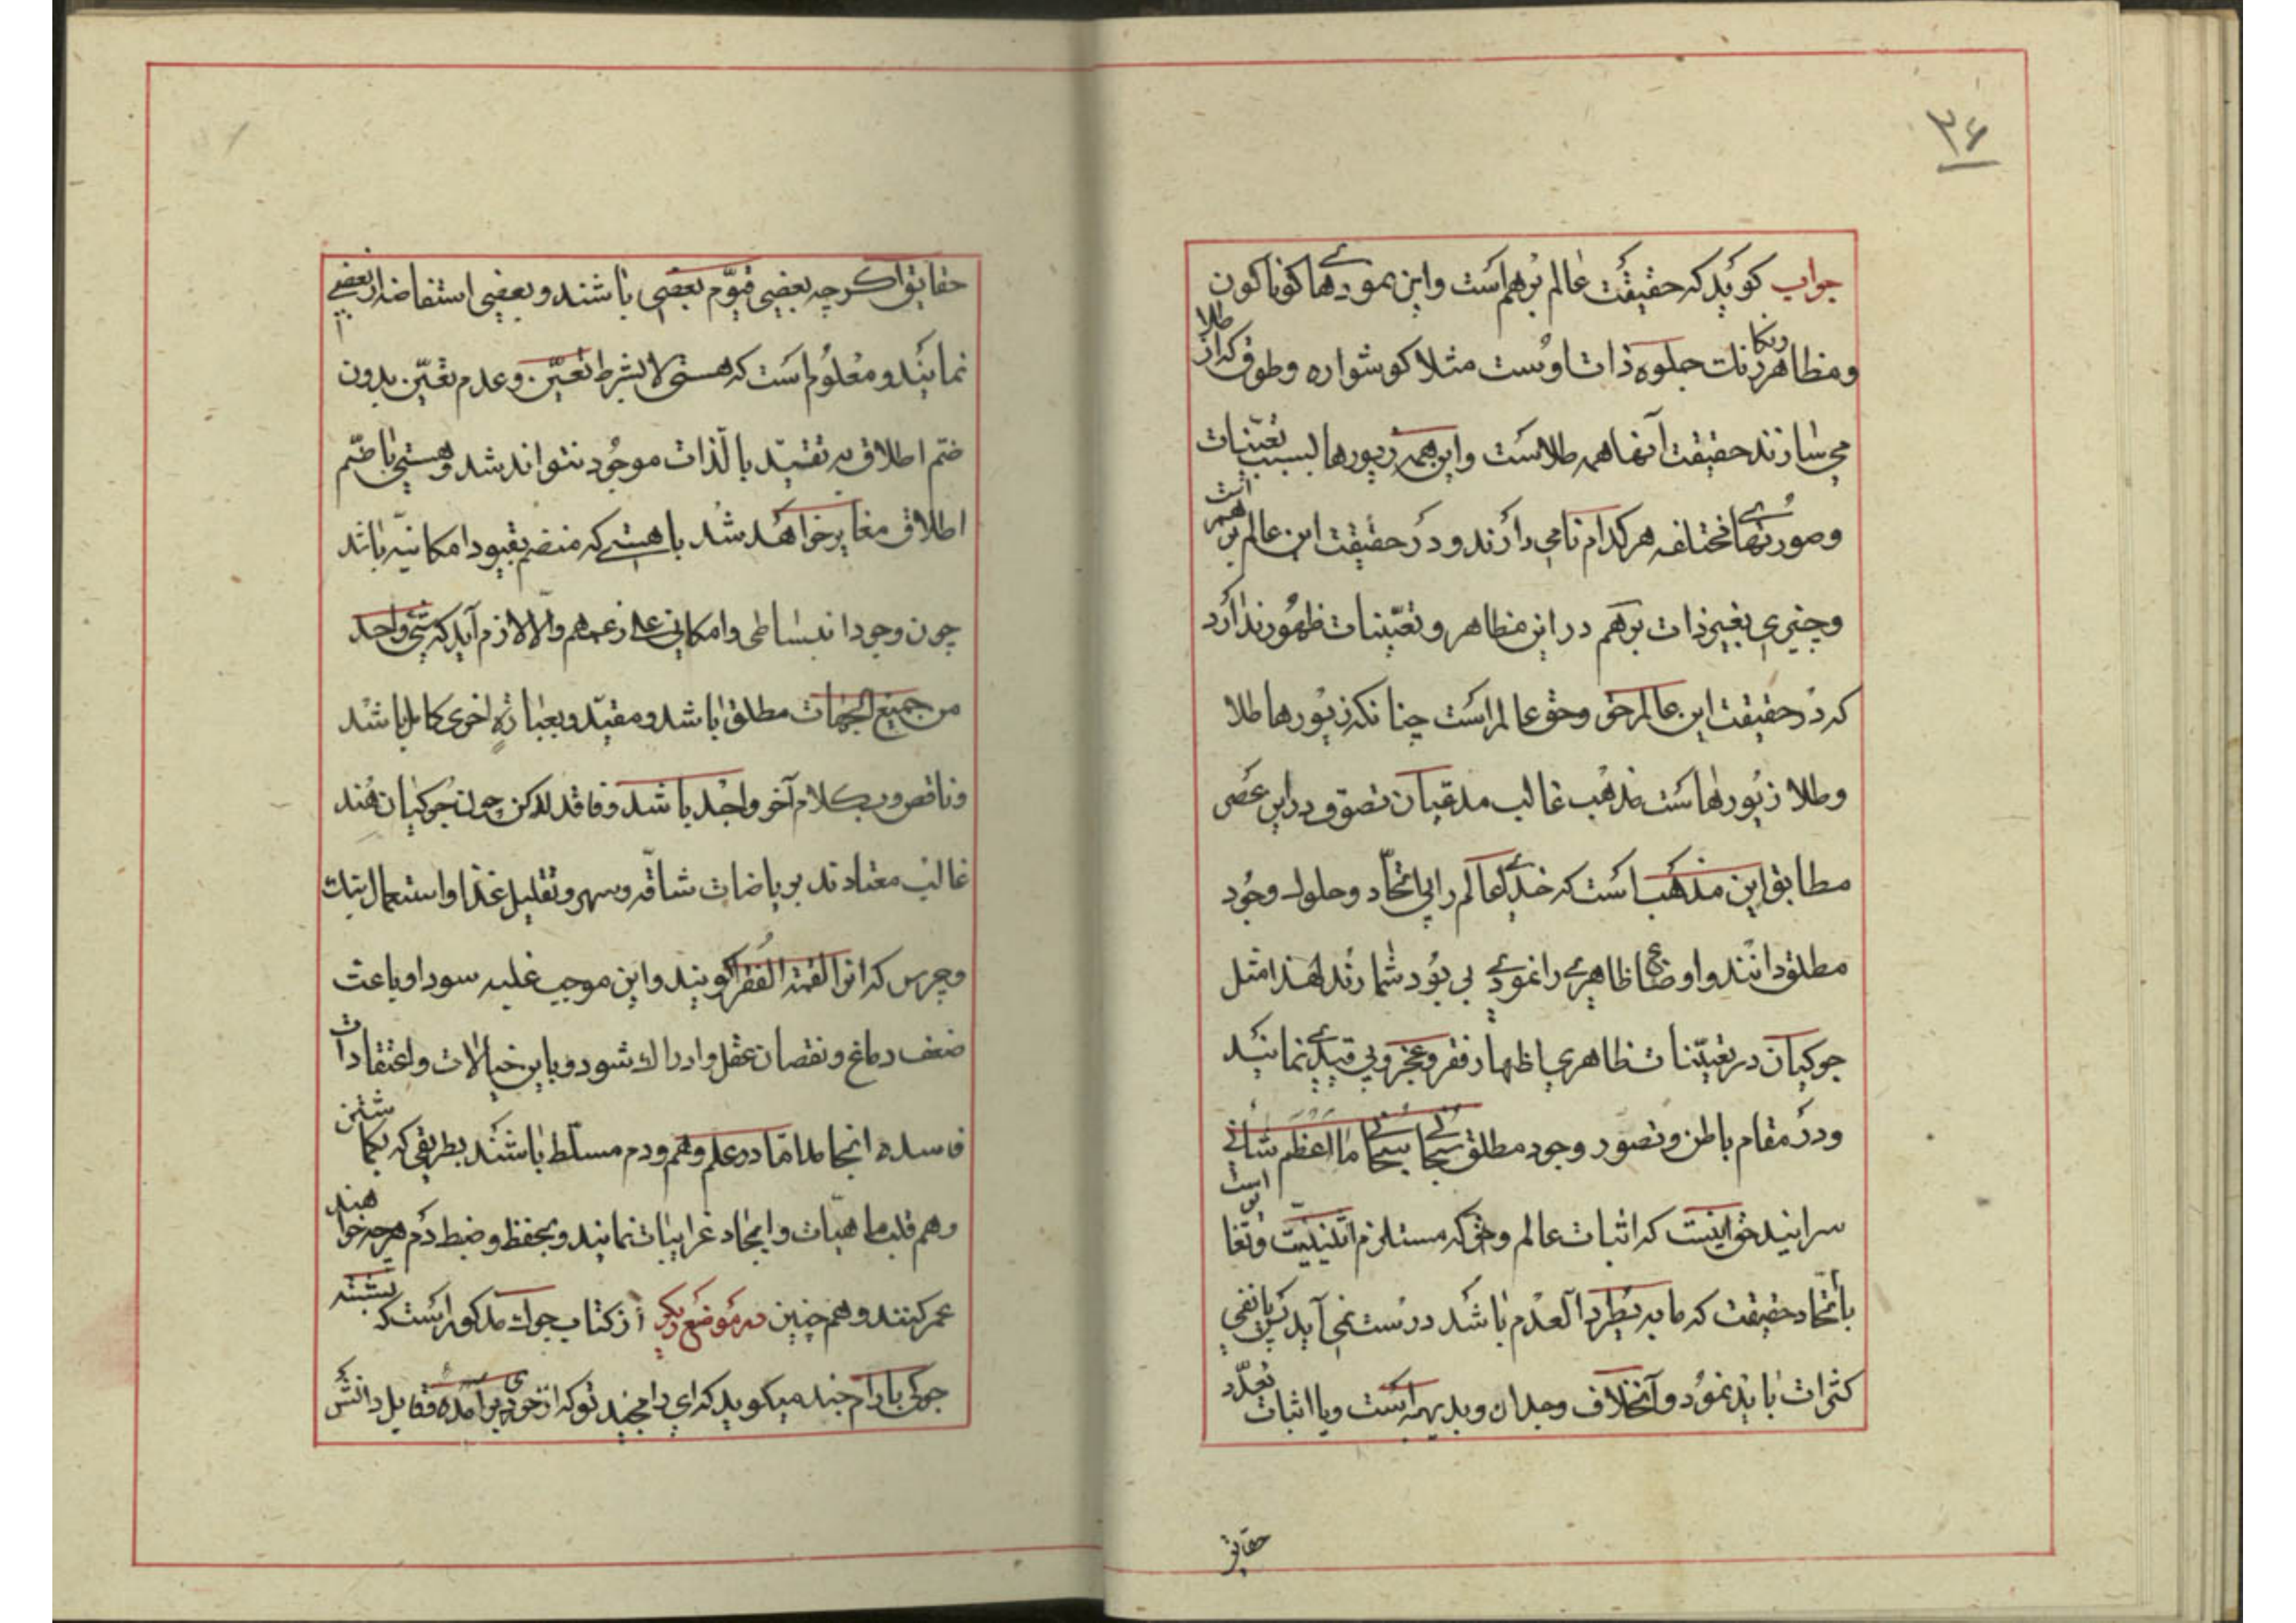 ۳۶
جواب کوید که حقیقت عالم برهم است و این نمودهای کوناکون
و مظاهر رنکارنک جلوه ذات اوست مثلا کوشواره و طوق که از طلا
می سازند حقیقت آنها همه طلاست و این همه زیورها بسبب تعینات
و صورتهای مختلفه هر کدام نامی دارند و در حقیقت این عالم برهم است
و چیزی بغیر ذات برهم در این مظاهر و تعینات ظهور ندارد
که در حقیقت این عالم حق و حق عالم است چنانکه زیورها طلا
و طلا زیورهاست مذهب غالب مدعیان تصوف در این عصر
مطابق این مذهب است که خدای عالم را بی اتحاد و حلول وجود
مطلق دانند و اوضاع ظاهری را نمودی بی بود شمارند لهذا مثل
جوکیان در تعینات ظاهری اظهار فقر و عجز و بی قیدی نمایند
و در مقام باطن و تصور وجود مطلق سبحانی سبحانی ما اعظم شانی
سرایند حق اینست که اثبات عالم و حق که مستلزم اثنینیت و تغایر است
با اتحاد حقیقت که ما به یطرد العدم باشد درست نمی آید پس یا نفی
کثرات باید نمود و آن خلاف وجدان و بدیهه است و یا اثبات تعدد
حقایق
حقایق اکرچه بعضی قیوم بعضی باشند و بعضی استفاضه از بعضی
نمایند و معلوم است که هستی لا بشرط تعین و عدم تعین بدون
ضم اطلاق یا تقیید بالذات موجود نتواند شد و هستی با ضم
اطلاق مغایر خواهد شد با هستی که منضم بقیود امکانیه باشد
چون وجود انبساطی و امکانی علی زعمهم و الا لازم آید که شیء واحد
من جمیع الجهات مطلق باشد و مقید و بعباره اخری کامل باشد
و ناقص و بکلام آخر واجد باشد و فاقد لکن چون جوکیان هند
غالب معتادند بریاضات شاقه و سهر و تقلیل غذا و استعمال بنک
و چرس که انرا لقمة الفقرا کویند و این موجب غلبه سودا و باعث
ضعف دماغ و نقصان عقل و ادراک شود و باین خیالات و اعتقادات
فاسده انجامد اما در علم وهم و دم مسلط باشند بطریقی که بکماشتن
وهم قلب ماهیات و ایجاد غرایبات نمایند و بحفظ و ضبط دم هر چه خواهند
عمر کنند و هم چنین در موضع دیکر از کتاب جوک مذکور است که بسشته
جوکی با رام چند میکوید که ای رامچند تو که از خودی برآمده و قابل دانش